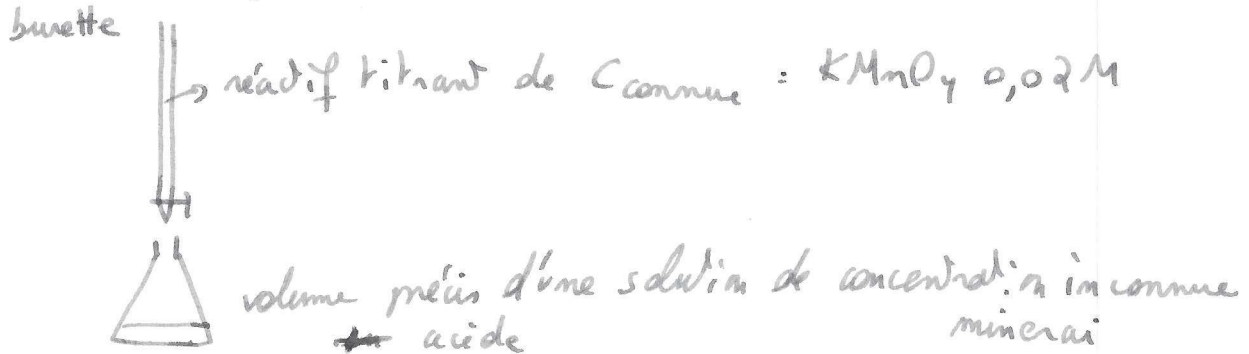 burette
réactif titrant de C connue : KMnO4 0,02M
volume précis d'une solution de concentration inconnue
acide minerai